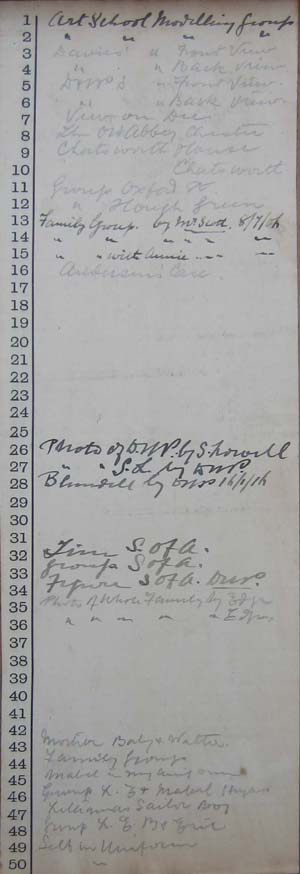 1 Art School Modelling Group
2 " " " "
3 Davies' " Front View
4 " " Back View
5 " Front View
6 " Back View
7 View on Dee
8 Old Abbey Chester
9 Chatsworth House
10 Chatsworth
11 Group Oxford St.
12 " Hough Green
13 Family Group. by 8/7/06
14 " " " " "
15 " " with Annie " "
16
17
18
19
20
21
22
23
24
25
26 Photo of D.W.P. by S. Howell
27 " " S.H. by DWP.
28 Blundell by DWP
29
30
31
32 Time S. of A.
33 Groups S of A.
34 Figure S of A. DWP.
35 Photo of Whole Family by
36 " " " "
37
38
39
40
41
42
43 Mother Baby & Walter
44 Family Group
45 Mabel in my uniform
46 Group & Mabel
47 Sailor Boy
48 Group & Eric
49 Self in Uniform
50 "